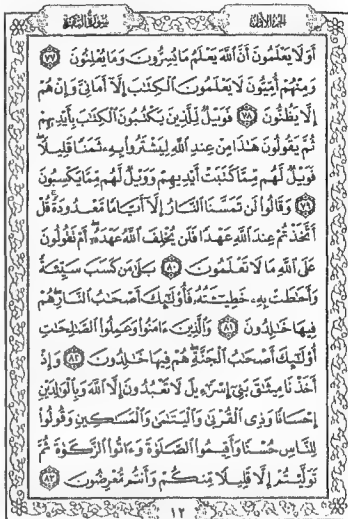 الجزء الأول
سورة البقرة
أَوَلَا يَعْلَمُونَ أَنَّ اللَّهَ يَعْلَمُ مَا يُسِرُّونَ وَمَا يُعْلِنُونَ ٧٧
وَمِنْهُمْ أُمِّيُّونَ لَا يَعْلَمُونَ الْكِتَٰبَ إِلَّا أَمَانِيَّ وَإِنْ هُمْ
إِلَّا يَظُنُّونَ ٧٨ فَوَيْلٌ لِّلَّذِينَ يَكْتُبُونَ الْكِتَٰبَ بِأَيْدِيهِمْ
ثُمَّ يَقُولُونَ هَٰذَا مِنْ عِندِ اللَّهِ لِيَشْتَرُوا بِهِ ثَمَنًا قَلِيلًا
فَوَيْلٌ لَّهُم مِّمَّا كَتَبَتْ أَيْدِيهِمْ وَوَيْلٌ لَّهُم مِّمَّا يَكْسِبُونَ
٧٩ وَقَالُوا لَن تَمَسَّنَا النَّارُ إِلَّا أَيَّامًا مَّعْدُودَةً قُلْ
أَتَّخَذْتُمْ عِندَ اللَّهِ عَهْدًا فَلَن يُخْلِفَ اللَّهُ عَهْدَهُ أَمْ تَقُولُونَ
عَلَى اللَّهِ مَا لَا تَعْلَمُونَ ٨٠ بَلَىٰ مَن كَسَبَ سَيِّئَةً
وَأَحَٰطَتْ بِهِ خَطِيئَتُهُ فَأُولَٰئِكَ أَصْحَٰبُ النَّارِ هُمْ
فِيهَا خَٰلِدُونَ ٨١ وَالَّذِينَ ءَامَنُوا وَعَمِلُوا الصَّٰلِحَٰتِ
أُولَٰئِكَ أَصْحَٰبُ الْجَنَّةِ هُمْ فِيهَا خَٰلِدُونَ ٨٢ وَإِذْ
أَخَذْنَا مِيثَٰقَ بَنِي إِسْرَٰءِيلَ لَا تَعْبُدُونَ إِلَّا اللَّهَ وَبِالْوَٰلِدَيْنِ
إِحْسَانًا وَذِي الْقُرْبَىٰ وَالْيَتَٰمَىٰ وَالْمَسَٰكِينِ وَقُولُوا
لِلنَّاسِ حُسْنًا وَأَقِيمُوا الصَّلَوٰةَ وَءَاتُوا الزَّكَوٰةَ ثُمَّ
تَوَلَّيْتُمْ إِلَّا قَلِيلًا مِّنكُمْ وَأَنتُم مُّعْرِضُونَ ٨٣
١٢